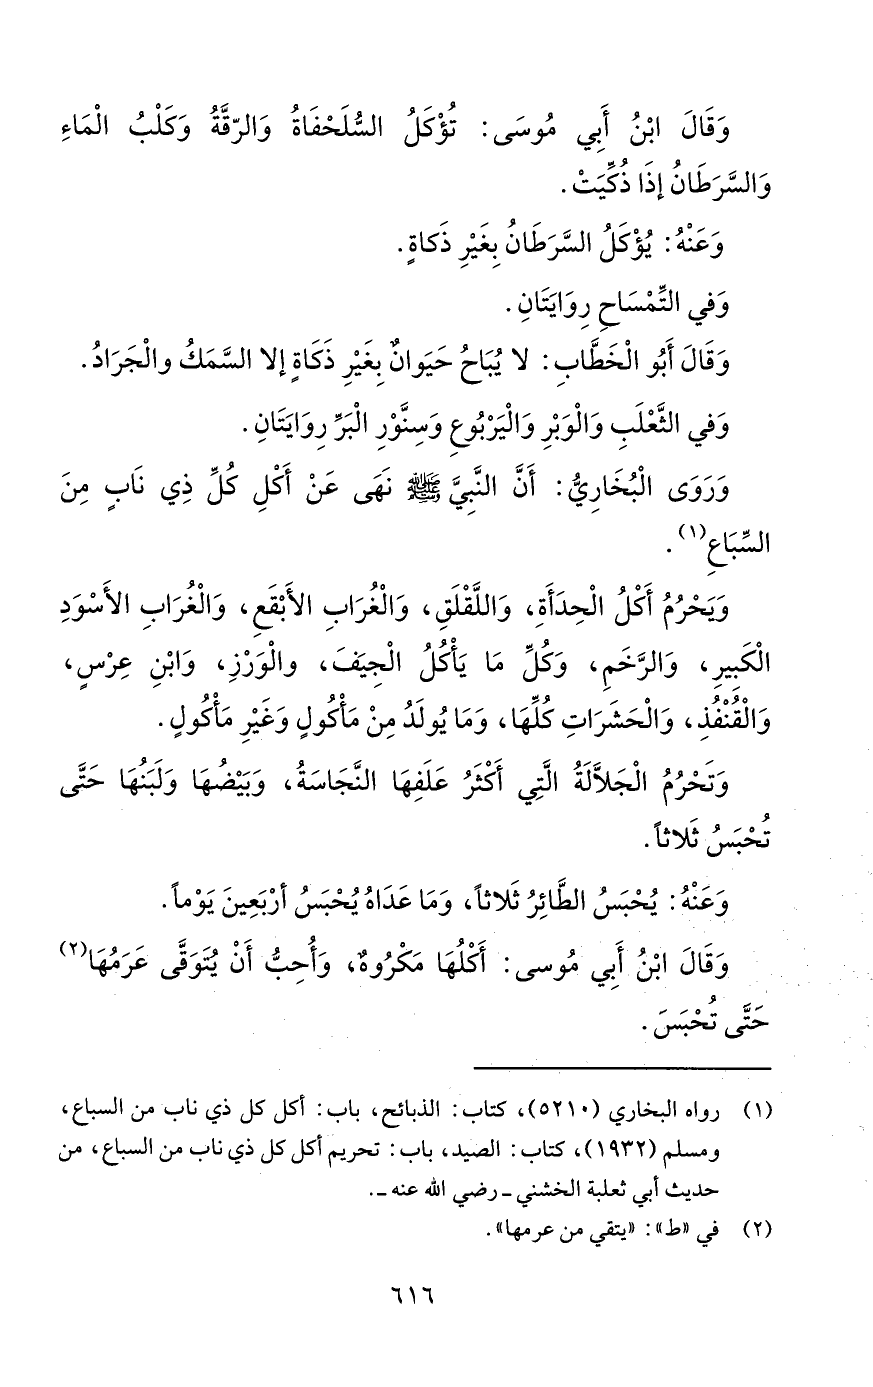 وَقَالَ ابْنُ أَبِي مُوسَى: تُؤْكَلُ السُّلَحْفَاةُ وَالرّقَّةُ وَكَلْبُ الْمَاءِ
وَالسَّرَطَانُ إذَا ذُكِّيَتْ.
وَعَنْهُ: يُؤْكَلُ السَّرَطَانُ بِغَيْرِ ذَكاةٍ.
وَفي التِّمْسَاحِ رِوَايَتَانِ.
وَقَالَ أَبُو الْخَطَّابِ: لا يُبَاحُ حَيَوانٌ بِغَيْرِ ذَكَاةٍ إلا السَّمَكُ والْجَرَادُ.
وَفي الثَّعْلَبِ وَالْوَبْرِ وَالْيَرْبُوعِ وَسِنَّوْرِ الْبَرِّ رِوَايَتَانِ.
وَرَوَى الْبُخَارِيُّ: أَنَّ النَّبِيَّ ﷺ نَهَى عَنْ أَكْلِ كُلِّ ذِي نَابٍ مِنَ
السِّبَاعِ(١).
وَيَحْرُمُ أَكْلُ الْحِدَأَةِ، وَاللَّقْلَقِ، وَالْغُرَابِ الأَبْقَعِ، وَالْغُرَابِ الأَسْوَدِ
الْكَبِيرِ، وَالرَّخَمِ، وَكُلِّ مَا يَأْكُلُ الْجِيَفَ، والْوَرْزِ، وَابْنِ عِرْسٍ،
وَالْقُنْفُذِ، وَالْحَشَرَاتِ كُلِّهَا، وَمَا يُولَدُ مِنْ مَأْكُولٍ وَغَيْرِ مَأْكُولٍ.
وَتَحْرُمُ الْجَلاَّلَةُ الَّتِي أَكْثَرُ عَلَفِهَا النَّجَاسَةُ، وَبَيْضُهَا وَلَبَنُهَا حَتَّى
تُحْبَسُ ثَلاثاً.
وَعَنْهُ: يُحْبَسُ الطَّائِرُ ثَلاثاً، وَمَا عَدَاهُ يُحْبَسُ أرْبَعِينَ يَوْماً.
وَقَالَ ابْنُ أَبِي مُوسى: أَكْلُهَا مَكْرُوهٌ، وَأُحِبُّ أَنْ يُتَوَقَّى عَرَمُهَا(٢)
حَتَّى تُحْبَسَ.
(١) رواه البخاري (٥٢١٠)، كتاب: الذبائح، باب: أكل كل ذي ناب من السباع،
ومسلم (١٩٣٢)، كتاب: الصيد، باب: تحريم أكل كل ذي ناب من السباع، من
حديث أبي ثعلبة الخشني ـ رضي الله عنه ـ.
(٢) في «ط»: «يتقي من عرمها».
٦١٦